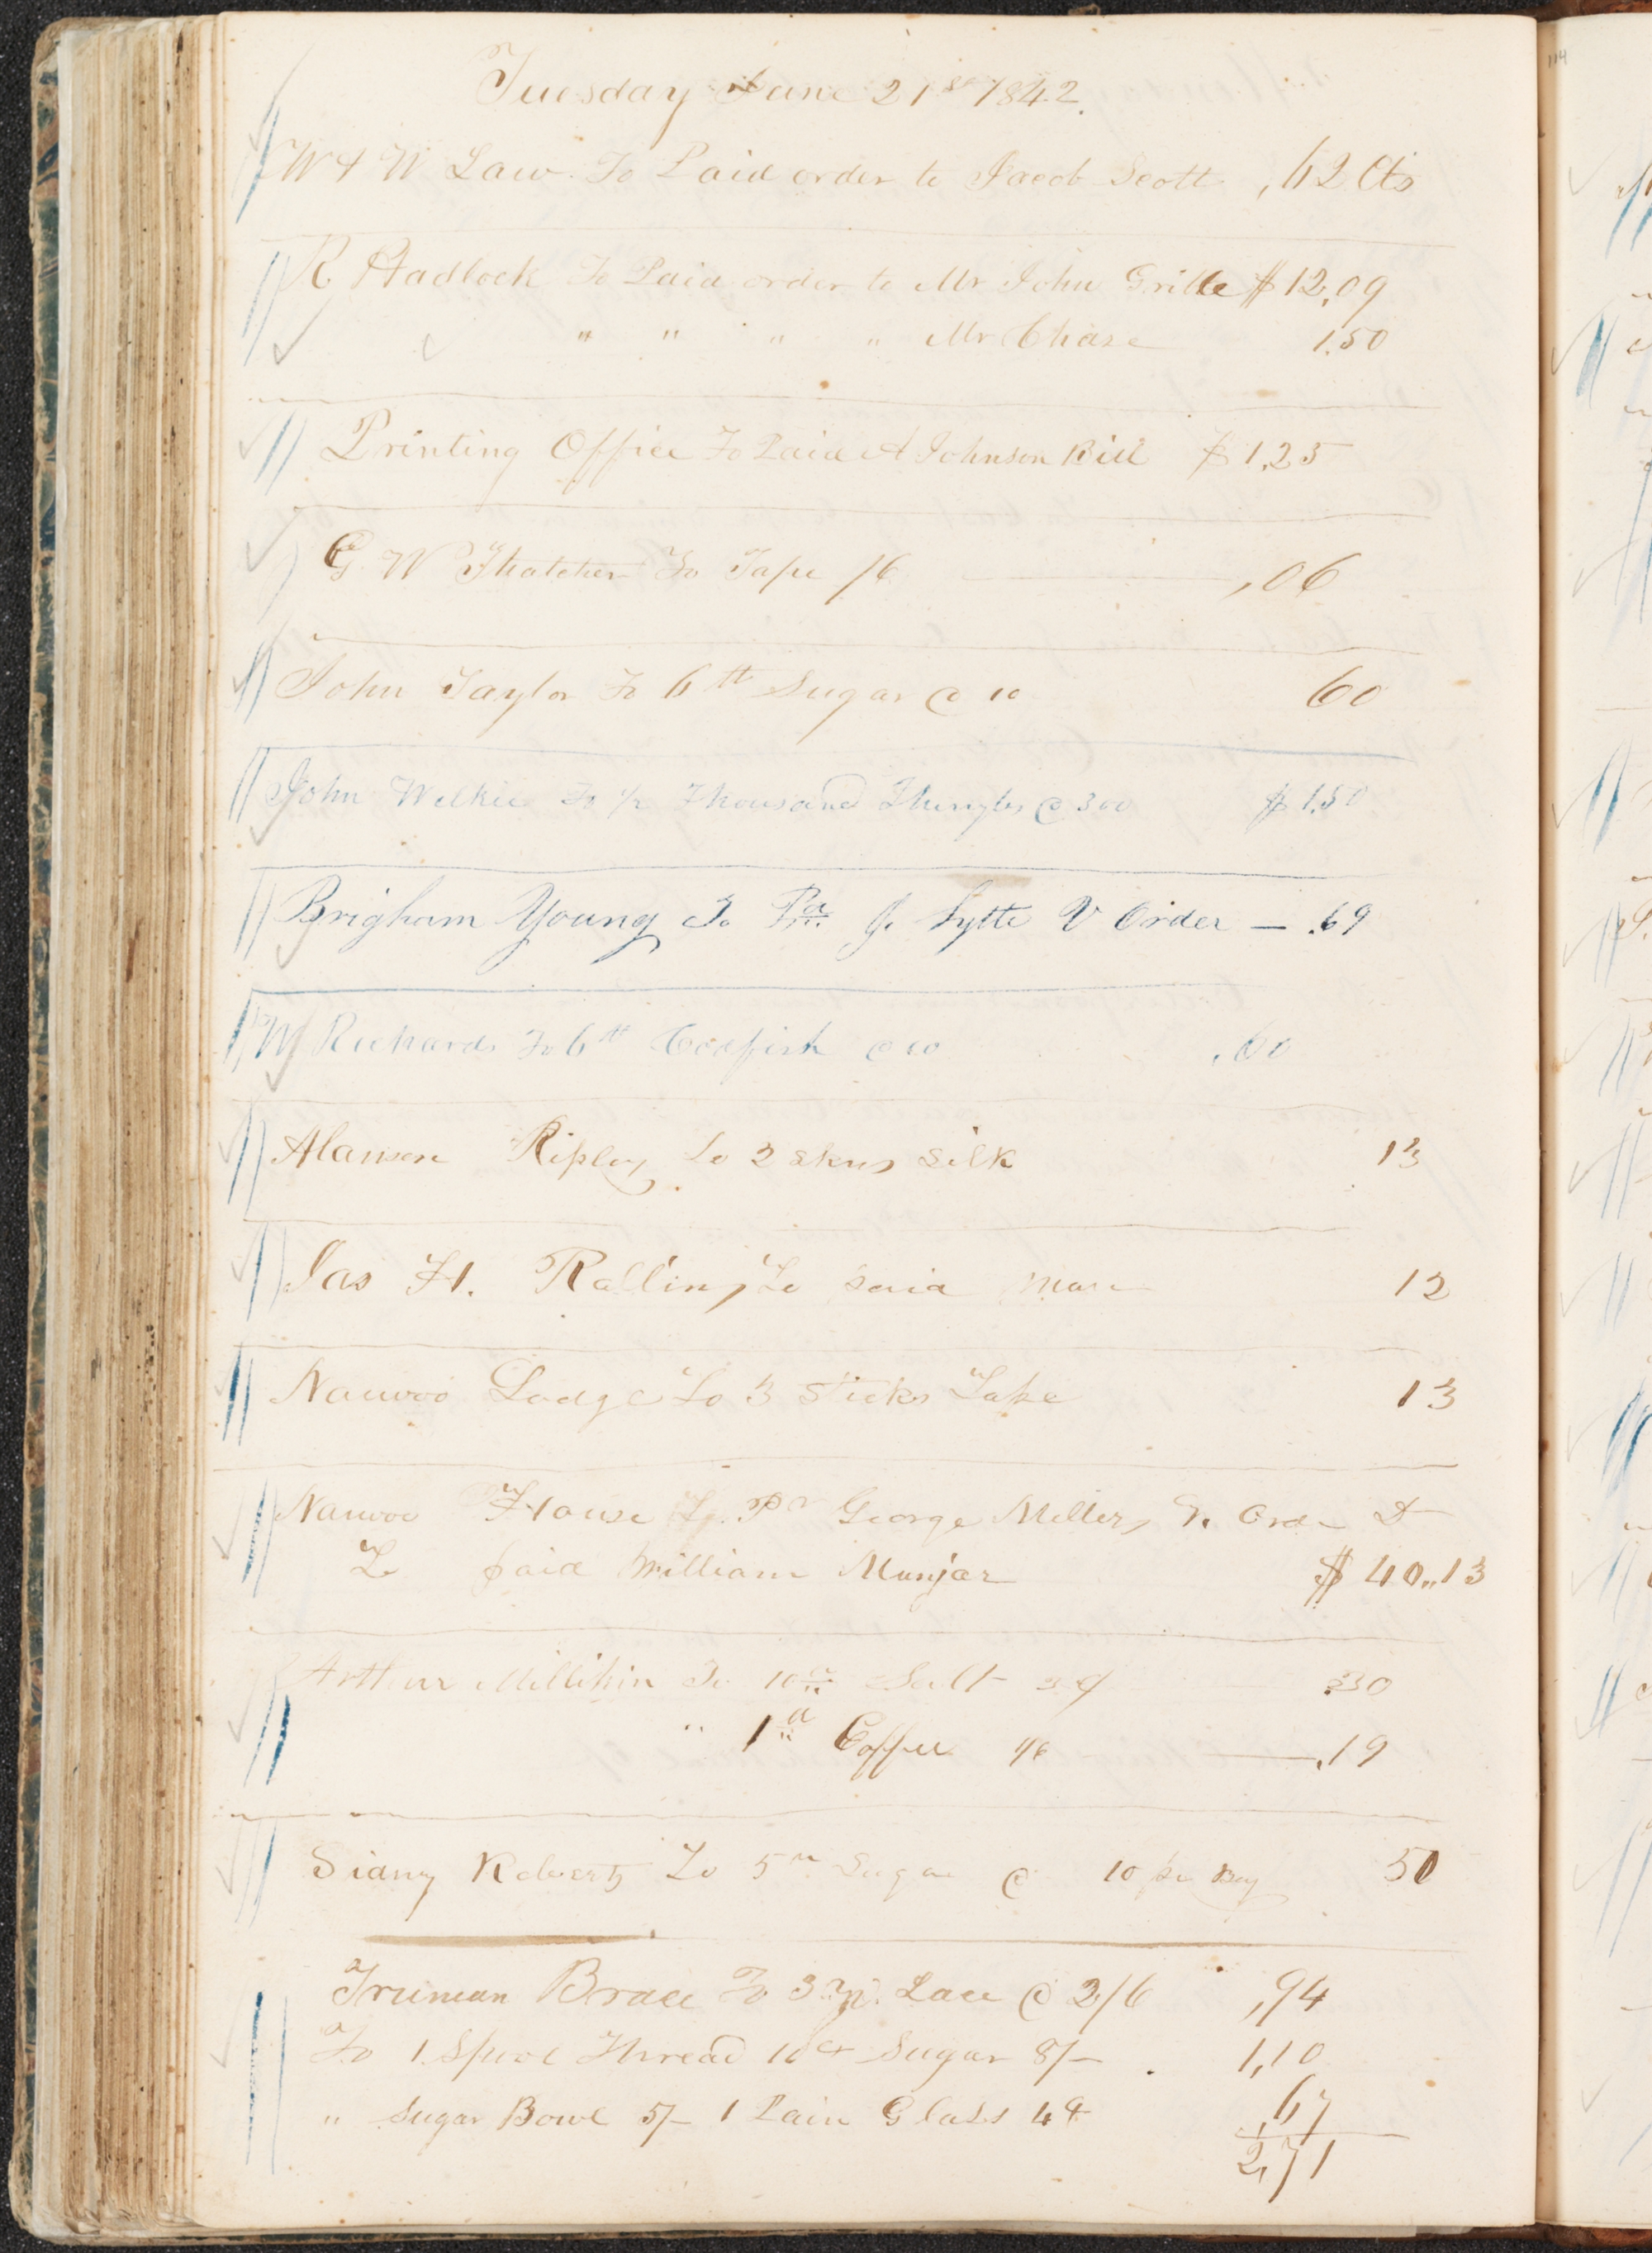 Tuesday June 21st 1842.
W & W Law To Paid order to Jacob Scott ,62 Cts
R Hadlock To Paid order to Mr John Grille $12,09
" " " " Mr Chase 1.50
Printing Office To Paid A Johnson Bill $1,25
G W Thatcher To Tape /6 ,06
John Taylor To 6 tt Sugar @ 10 60
John Welkie To 1/2 Thousand Shingles @ 300 $1.50
Brigham Young To Pd J. Lytle Order — .69
W Richards To 6 tt Codfish @ 10 .60
Alanson Ripley To 2 skns silk 13
Jas H. Rallins To paid 12
Nauvoo Lodge To 3 Sticks Take 13
Nauvoo House To Pr George Miller,
To paid William Munjar $40,,13
Arthur Millikin To 10 Salt 3 30
" 1 Coffee 1/6 — .19
Sidny Roberts To 5 Sugar @ 10 pr Boy 50
Truman Brace To 3 Lace @ 2/6 ,94
To 1 Spool Thread 10 ct Sugar 8/– 1,10
" Sugar Bowl 5/– 1 Pain Glass 4 ,67
2,71
114